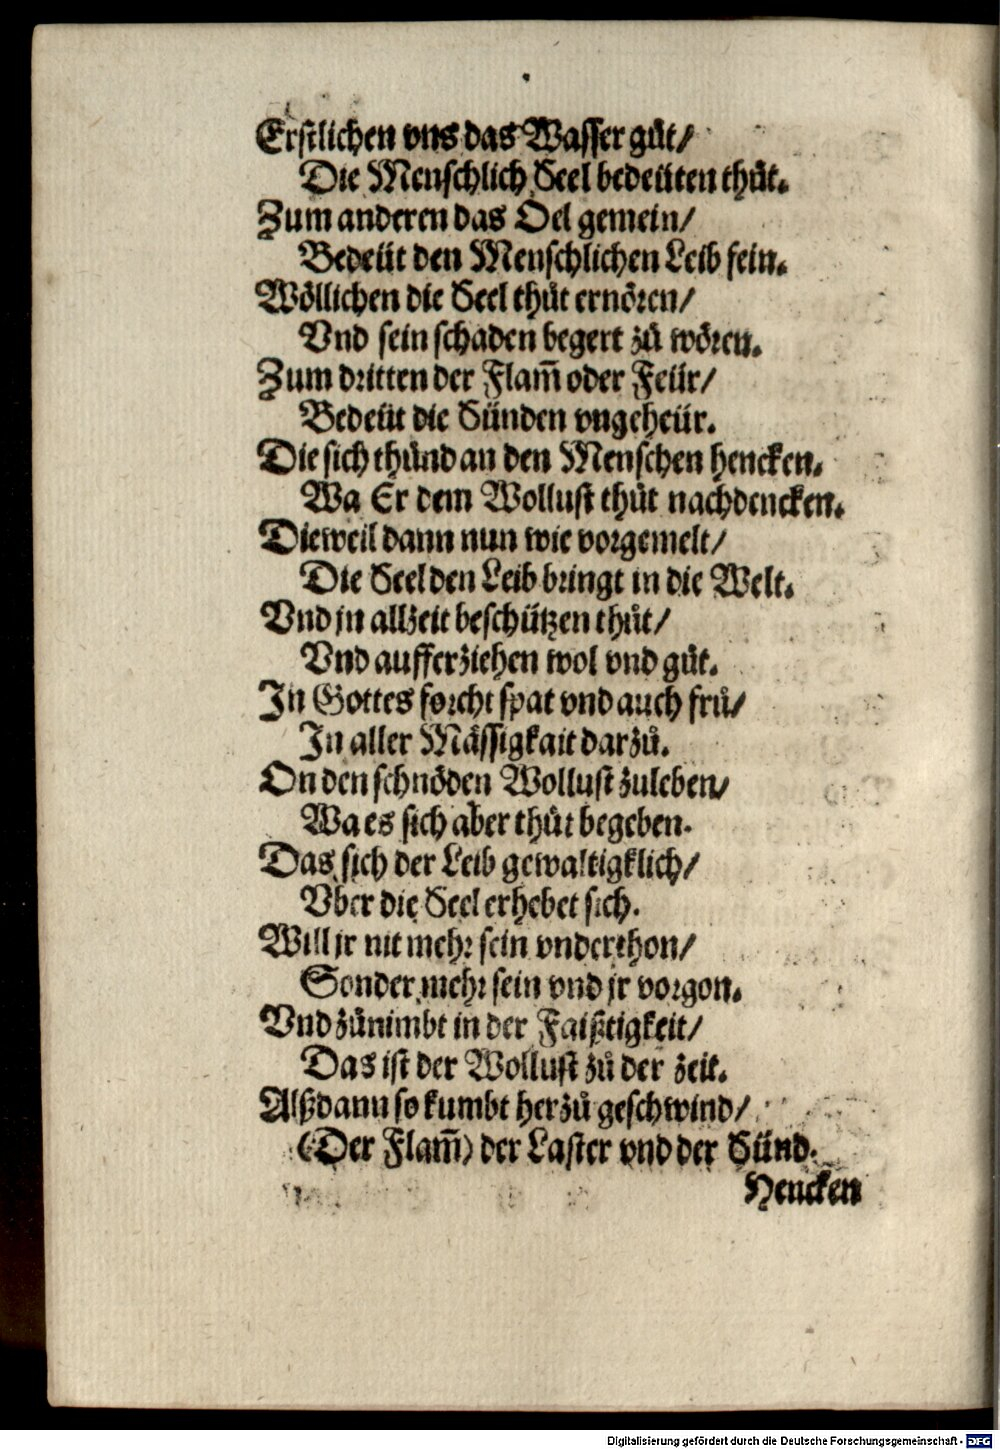 Erstlichen vns das Wasser guͦt/
Die Menschlich Seel bedeüten thuͦt.
Zum anderen das Oel gemein/
Bedeüt den Menschlichen Leib fein.
Woͤllichen die Seel thuͦt ernoͤren/
Vnd sein schaden begert zuͦ woͤren.
Zum dritten der Flam̃ oder Feür/
Bedeüt die Sünden vngeheür.
Die sich thuͦnd an den Menschen hencken.
Wa Er dem Wollust thuͦt nachdencken.
Dieweil dann nun wie vorgemelt/
Die Seel den Leib bringt in die Welt.
Vnd jn allzeit beschützen thuͦt/
Vnd aufferziehen wol vnd guͦt.
In Gottes forcht spat vnd auch fruͤ/
In aller Maͤssigkait darzuͦ.
On den schnoͤden Wollust zuleben/
Wa es sich aber thuͦt begeben.
Das sich der Leib gewaltigklich/
Vber die Seel erhebet sich.
Will jr nit mehr sein vnderthon/
Sonder mehr sein vnd jr vorgon.
Vnd zuͦnimbt in der Faißtigkeit/
Das ist der Wollust zuͦ der zeit.
Alßdann so kumbt herzuͦ geschwind/
(Der Flam̃) der Laster vnd der Sünd.
Hencken
Digitalisierung gefördert durch die Deutsche Forschungsgemeinschaft - DFG